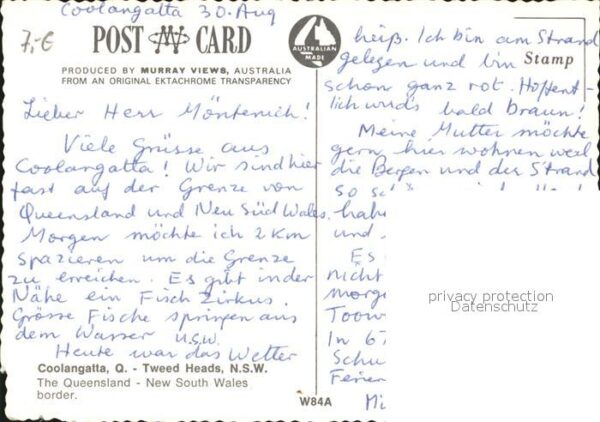 Coolangatta 30. Aug
7,-€
POST CARD
AUSTRALIAN MADE
PRODUCED BY MURRAY VIEWS, AUSTRALIA
FROM AN ORIGINAL EKTACHROME TRANSPARENCY
Lieber Herr Möntenich!
Viele Grüsse aus
Coolangatta! Wir sind hier
fast auf der Grenze von
Queensland und Neu Süd Wales.
Morgen möchte ich 2 Km
spazieren um die Grenze
zu erreichen. Es gibt in der
Nähe ein Fisch Zirkus.
Grösse Fische springen aus
dem Wasser u.s.w.
Heute war das Wetter
Coolangatta, Q. - Tweed Heads, N.S.W.
The Queensland - New South Wales
border.
W84A
Stamp
heiß. Ich bin am Strand
gelegen und bin
schon ganz rot. Hoffent-
lich wird's bald braun!
Meine Mutter möchte
gern hier wohnen weil
die Bergen und der Strand
so
habe
und
Es
nicht
morge
Toow
In 67
Schu
Ferien
Mi
privacy protection
Datenschutz